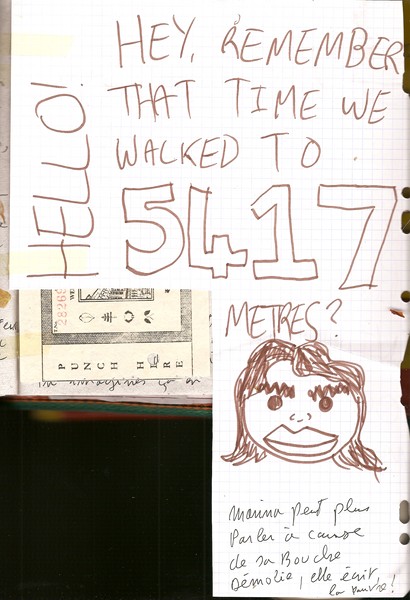 HELLO!
HEY, REMEMBER
THAT TIME WE
WALKED TO
5417
METRES?
28269
PUNCH HERE
Marina peut plus
Parler à cause
de sa Bouche
Démolie, elle écrit,
la pauvre!